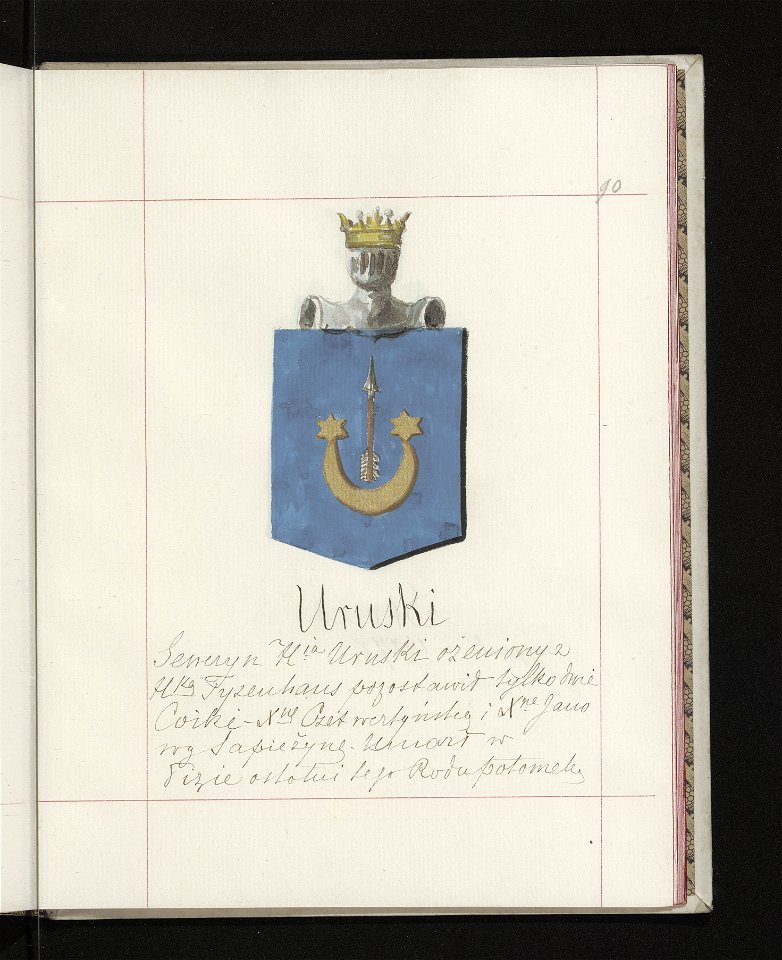 90
Uruski
Seweryn Hia Uruski ożeniony z
Hką Tysenhaus pozostawił tylko dwie
Córki - Xnę Czetwertyńską i Xnę Jano
wą Sapieżynę. Umarł w
ostatni tego Rodu potomek